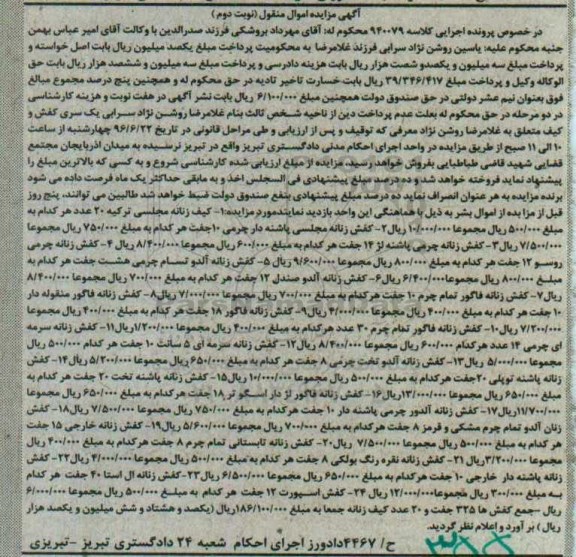 آگهی مزایده اموال منقول (نوبت دوم)
در خصوص پرونده اجرایی کلاسه ۹۴۰۰۷۹ محکوم له: آقای مهرداد بروشکی فرزند صدرالدین با وکالت آقای امیر عباس بهمن
جنبه محکوم علیه: یاسین روشن نژاد سرابی فرزند غلامرضا به محکومیت پرداخت مبلغ یکصد میلیون ریال بابت اصل خواسته و
پرداخت مبلغ سه میلیون و یکصدو شصت هزار ریال بابت هزینه دادرسی و پرداخت مبلغ سه میلیون و ششصد هزار ریال بابت حق
الوکاله وکیل و پرداخت مبلغ ۳۹/۳۴۶/۴۱۷ ریال بابت خسارت تاخیر تادیه در حق محکوم له و همچنین پنج درصد مجموع مبالغ
فوق بعنوان نیم عشر دولتی در حق صندوق دولت همچنین مبلغ ۶/۱۰۰/۰۰۰ ریال بابت نشر آگهی در هفت نوبت و هزینه کارشناسی
در دو مرحله در حق محکوم له بعلت عدم پرداخت دین از ناحیه شخص ثالث بنام غلامرضا روشن نژاد سرابی یک سری کفش و
کیف متعلق به غلامرضا روشن نژاد معرفی که توقیف و پس از ارزیابی و طی مراحل قانونی در تاریخ ۹۶/۶/۲۲ چهارشنبه از ساعت
۱۰ الی ۱۱ صبح از طریق مزایده در واحد اجرای احکام مدنی دادگستری تبریز واقع در تبریز نرسیده به میدان اذربایجان مجتمع
قضایی شهید قاضی طباطبایی بفروش خواهد رسید مزایده از مبلغ ارزیابی شده کارشناسی شروع و به کسی که بالاترین مبلغ را
پیشنهاد نماید فروخته خواهد شد و ده درصد مبلغ پیشنهادی فی المجلس اخذ و به مابقی حداکثر یک ماه فرصت داده می شود
برنده مزایده به هر عنوان انصراف نماید ده درصد مبلغ پیشنهادی بنفع صندوق دولت ضبط خواهد شد طالبین می توانند، پنج روز
قبل از مزایده از اموال بشر به ذیل با هماهنگی این واحد بازدید نمایندمورد مزایده:۱- کیف زنانه مجلسی ترکیه ۲۰ عدد هر کدام به
مبلغ ۵۰۰/۰۰۰ ریال مجموعا ۱۰/۰۰۰/۰۰۰ ریال۲- کفش زنانه مجلسی پاشنه دار چرمی ۱۰جفت هر کدام به مبلغ ۷۵۰/۰۰۰ ریال مجموعا
۷/۵۰۰/۰۰۰ ریال ۳- کفش زنانه چرمی پاشنه لژ ۱۴ جفت هر کدام به مبلغ ۶۰۰/۰۰۰ ریال مجموعا ۸/۴۰۰/۰۰۰ ریال ۴- کفش زنانه چرمی
روسو ۱۲ جفت هر کدام به مبلغ ۸۰۰/۰۰۰ ریال مجموعا ۹/۶۰۰/۰۰۰ ریال ۵- کفش زنانه آلدو تمام چرمی هشت جفت هر کدام به
مبلغ ۸۰۰/۰۰۰ ریال مجموعا ۶/۴۰۰/۰۰۰ ریال۶- کفش زنانه آلدو صندل ۱۲ جفت هر کدام به مبلغ ۷۰۰/۰۰۰ ریال مجموعا ۸/۴۰۰/۰۰۰
ریال ۷- کفش زنانه فاگور تمام چرم ۱۰ جفت هر کدام به مبلغ ۷۰۰/۰۰۰ ریال مجموعا ۷/۰۰۰/۰۰۰ ریال۸- کفش زنانه فاگور منقوله دار
۱۰ جفت هر کدام به مبلغ ۴۰۰/۰۰۰ ریال مجموعا ۴/۰۰۰/۰۰۰ ریال۹- کفش زنانه فاگور ۱۸ جفت هر کدام به مبلغ ۴۰۰/۰۰۰ ریال مجموعا
۷/۲۰۰/۰۰۰ ریال۱۰- کفش زنانه فاگور تمام چرم ۳۰ عدد هرکدام به مبلغ ۴۰۰/۰۰۰ ریال مجموعا ۱/۲۰۰/۰۰۰ ریال۱۱- کفش زنانه سرمه
ای چرمی ۱۴ عدد هرکدام ۶۰۰/۰۰۰ ریال مجموعا ۸/۴۰۰/۰۰۰ ریال۱۲- کفش زنانه سرمه ای ۵ سانت ۱۰ جفت هر کدام ۵۰۰/۰۰۰ ریال
مجموعا ۵/۰۰۰/۰۰۰ ریال ۱۳- کفش زنانه آلدو تخت چرمی ۸ جفت هر کدام به مبلغ ۶۵۰/۰۰۰ ریال مجموعا ۵/۲۰۰/۰۰۰ ریال۱۴- کفش
زنانه پاشنه توپلی ۲۰جفت هرکدام به مبلغ ۵۰۰/۰۰۰ ریال مجموعا ۱۰/۰۰۰/۰۰۰ ریال۱۵- کفش زنانه پاشنه تخت ۲۰ جفت هر کدام به
مبلغ ۶۵۰/۰۰۰ ریال مجموعا ۱۳/۰۰۰/۰۰۰ریال۱۶- کفش زنانه فاگور لژ دار اسگو تر ۱۸ جفت هر کدام به مبلغ ۶۵۰/۰۰۰ ریال مجموعا
۱۱/۷۰۰/۰۰۰ریال۱۷- کفش زنانه آلدور چرمی پاشنه دار ۱۰ جفت هرکدام به مبلغ ۷۵۰/۰۰۰ ریال مجموعا ۷/۵۰۰/۰۰۰ ریال۱۸- کفش
زنان آلدو تمام چرم مشکی و قرمز ۸ جفت هرکدام به مبلغ ۷۰۰/۰۰۰ ریال مجموعا ۵/۶۰۰/۰۰۰ ریال۱۹- کفش زنانه خارجی ۱۵ جفت
هر کدام به مبلغ ۵۰۰/۰۰۰ ریال مجموعا ۷/۵۰۰/۰۰۰ ریال۲۰- کفش زنانه تابستانی تمام چرم ۸ جفت هرکدام به مبلغ ۴۰۰/۰۰۰ ریال
مجموعا ۳/۲۰۰/۰۰۰ریال ۲۱- کفش زنانه نقره رنگ بولکی ۸ جفت هر کدام به مبلغ ۵۰۰/۰۰۰ ریال مجموعا ۴/۰۰۰/۰۰۰ ریال۲۲- کفش
زنانه پاشنه دار خارجی ۱۰ جفت هرکدام به مبلغ ۶۵۰/۰۰۰ ریال مجموعا ۶/۵۰۰/۰۰۰ ریال۲۳-کفش زنانه ال استا ۴۰ جفت هر کدام
به مبلغ ۳۰۰/۰۰۰ ریال مجموعا۱۲/۰۰۰/۰۰۰ ریال ۲۴- کفش اسپورت ۱۲ جفت هر کدام به مبلغ ۵۰۰/۰۰۰ ریال مجموعا ۶/۰۰۰/۰۰۰
ریال –جمع کفش ها ۳۲۵ جفت و ۲۰ عدد کیف زنانه جمعا به مبلغ ۱۸۶/۱۰۰/۰۰۰ریال (یکصد و هشتاد و شش میلیون و یکصد هزار
ریال) بر آورد و اعلام نظر گردید.
ح/ ۴۴۶۷دادورز اجرای احکام شعبه ۲۴ دادگستری تبریز –تبریزی